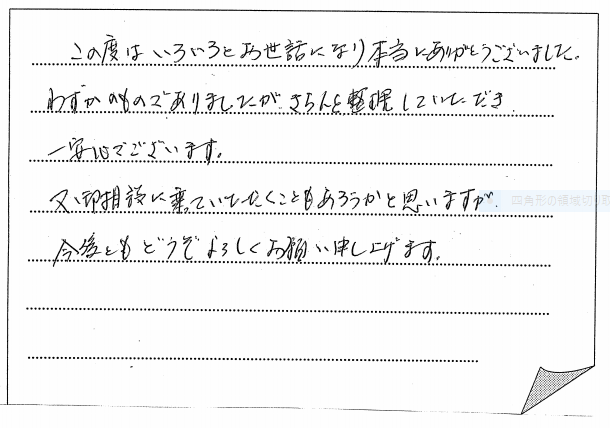 この度はいろいろとお世話になり本当にありがとうございました。
わずかのものでありましたがきちんと整理していただき
一安心でございます。
又、御相談に乗っていただくこともあろうかと思いますが
今後ともどうぞよろしくお願い申し上げます。
四角形の領域切り取